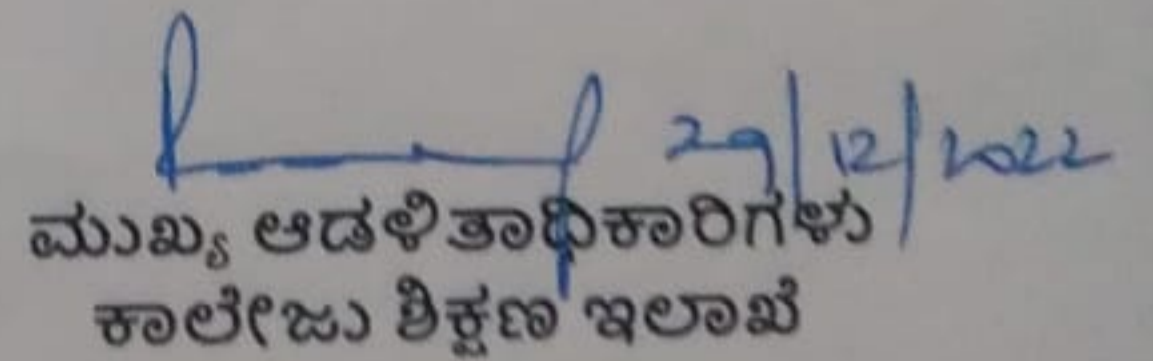 29/12/2022
ಮುಖ್ಯ ಆಡಳಿತಾಧಿಕಾರಿಗಳು
ಕಾಲೇಜು ಶಿಕ್ಷಣ ಇಲಾಖೆ